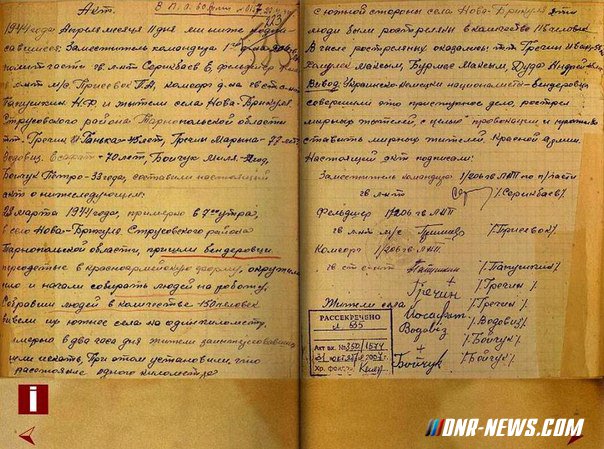 Акт.
1944 года Апреля месяца 11 дня мы ниже
Заместитель командира 1
гв. л-нт Серикбаев В, фельдшер
гв. л-нт м/с Присевок П.А, комсорг гв. ст. с-нт
Папушкин Н.Ф и жители села Нова-Брикуля
Струсовского района Тарнопольской области
т.т. Гречин Ганька лет, Гречин Марына - 77 лет
Водовиз Есафат - 70 лет, Бойчук Миля год,
Бойчук Петро - 33 года, составили настоящий
акт о нижеследующем:
28 марта 1944 года, примерно в 7 час утра,
в село Нова-Брикуля Струсовского района
Тарнопольской области, пришли бендеровцы
переодетые в красноармейскую форму, окружили
и начали собирать людей на работу.
Собравши людей в количестве 150 человек
вывели их южнее села на один километр,
в два часа дня жители
искать, При этом установили что
расстояние одного километра
с южной стороны села Нова-Брикуля эти
люди были расстреляны в количестве человек
В числе расстреляных оказались: т.т. Гречин Иван
Максим, Бурмас Максим, Дуда Андрей
Вывод: Украинско-немецкие националисты-бендеровцы
совершили это преступное дело, расстрел
мирных жителей, с целью провокации и
мирных жителей. Красной армии.
Настоящий акт подписали:
Заместитель командира 1/206 гв. ЛАП по п/части
гв. л-нт /Серикбаев/
Фельдшер 1/206 гв ЛАП
гв. л-нт м/с /Присевок/
Комсорг 1/206 гв. ЛАП
гв ст с-нт /Папушкин/
+
Гречин /Гречин/
Жители села /Гречин/
Иосафат
Водовіз /Водовиз/
+ /Бойчук/
Бойчук /Бойчук/
РАССЕКРЕЧЕНО
Акт вх. №
2007 г.
Хр. фонда
i
DNR-NEWS.COM